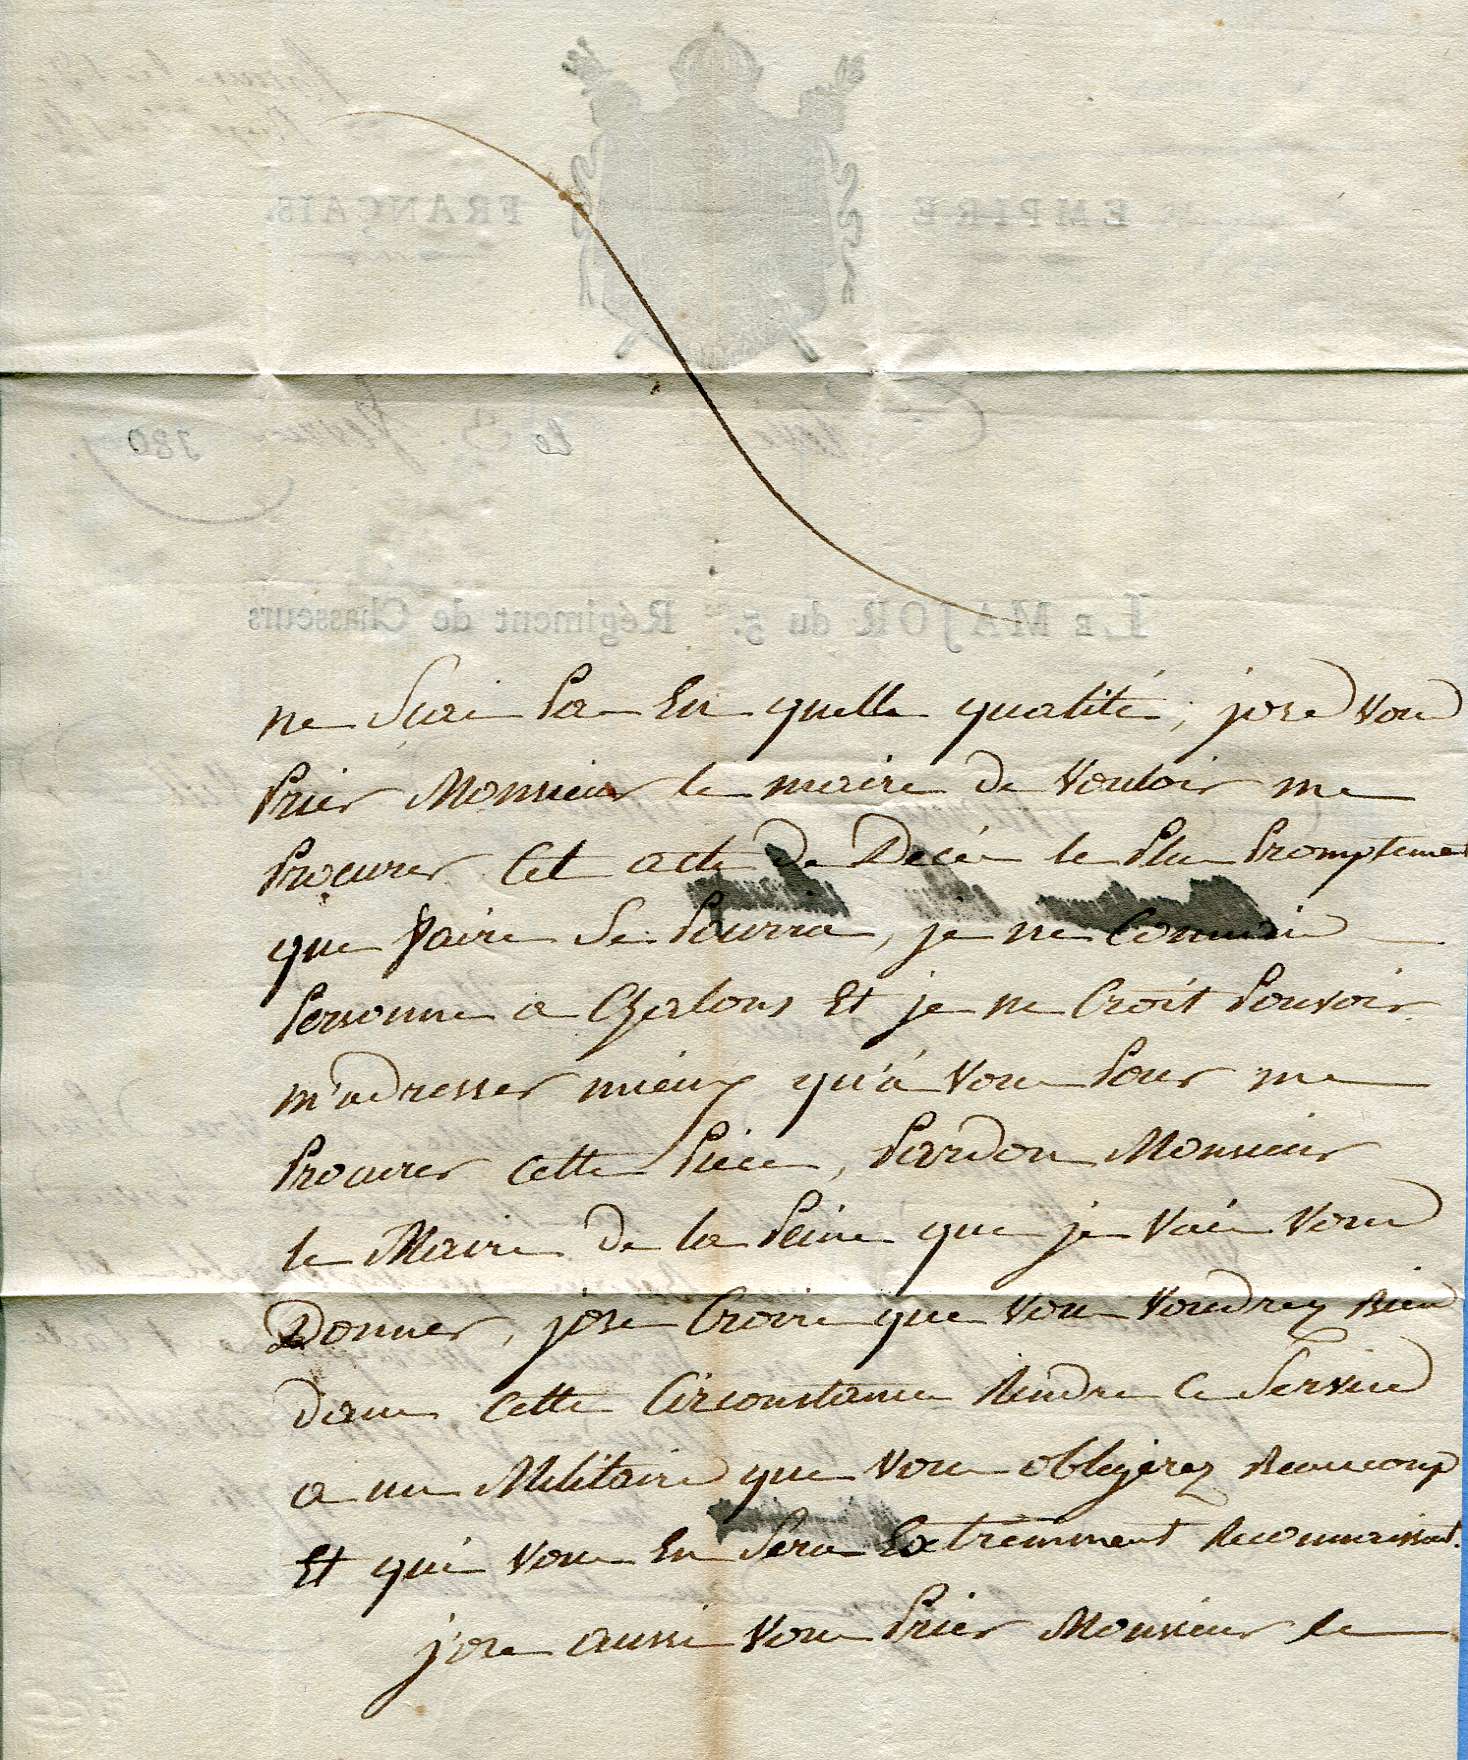 EMPIRE FRANÇAIS.
le 3. 180
LE MAJOR du 5.e Régiment de Chasseurs
ne Sçai Pas En quelle qualité, jose Vous
Prier Monsieur le maire de Vouloir me
Procurer Cet acte De Décés le Plus Promptement
que Faire Se Pourra, je ne Connois
Personne a Chalons Et je ne Croit Pouvoir
m'adresser mieux qu'à Vous Pour me
Procurer Cette Piece, Pardon Monsieur
le Maire De la Peine que je Vais Vous
Donner, jose Croire que Vous Voudrez Bien
dans Cette Circonstance Rendre Ce Service
a un Militaire que Vous obligerez Beaucoup
Et qui Vous En Sera Extremment Reconnaissant.
j'ose aussi Vous Prier Monsieur le